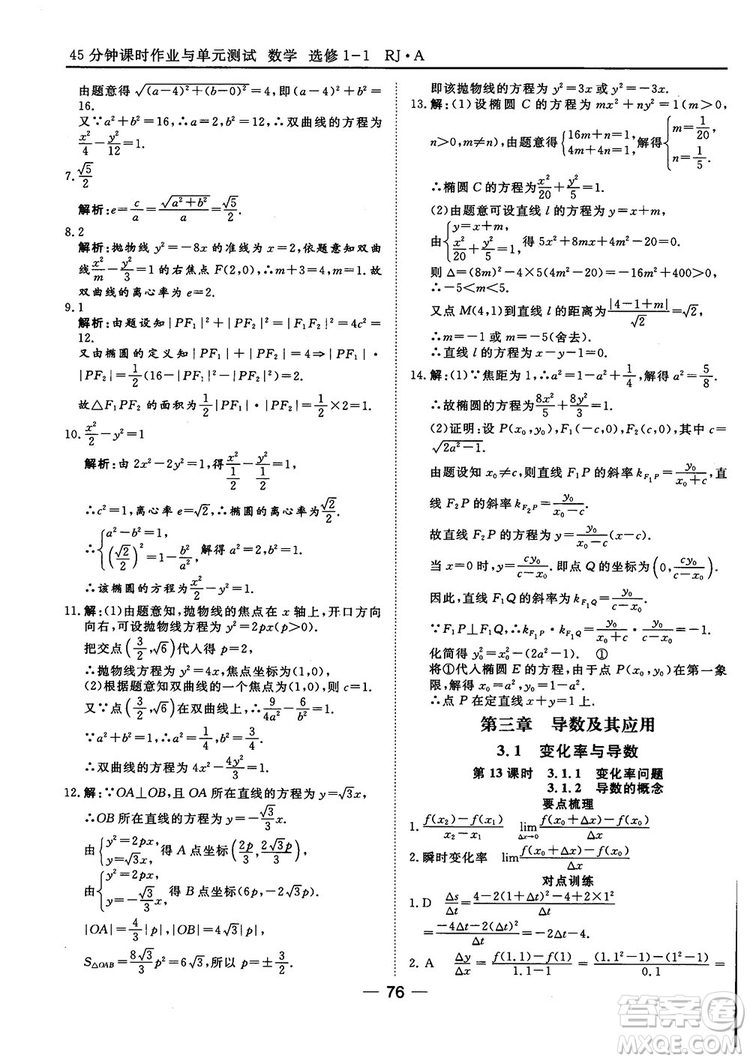 45分钟课时作业与单元测试 数学 选修1-1 RJ·A
由题意得√((a-4)²+(b-0)²)=4,即(a-4)²+b²=
16.
又∵a²+b²=16,∴a²=4,b²=12,∴双曲线的方程为
x²/4-y²/12=1.
7.√5/2
解析:e=c/a=√(a²+b²)/a=√5/2.
8.2
解析:抛物线y²=-8x的准线为x=2,依题意知双曲
线x²/m-y²/3=1的右焦点F(2,0),∴m+3=4,m=1,故
双曲线的离心率为e=2.
9.1
解析:由题设知|PF₁|²+|PF₂|²=|F₁F₂|²=
12.
又由椭圆的定义知|PF₁|+|PF₂|=4⇒|PF₁|·
|PF₂|=1/2(16-|PF₁|²-|PF₂|²)=1/2(16-12)=2.
故△F₁PF₂的面积为1/2|PF₁|·|PF₂|=1/2×2=1.
10.x²/2-y²=1
解析:由2x²-2y²=1,得x²/(1/2)-y²/(1/2)=1,
∴c²=1,离心率e=√2,∴椭圆的离心率为√2/2.
∴{a²-b²=1, (√2/2)²=1-b²/a², 解得{a²=2, b²=1,
∴该椭圆的方程为x²/2-y²=1.
11.解:(1)由题意知,抛物线的焦点在x轴上,开口方向
向右,可设抛物线方程为y²=2px(p>0).
把交点(3/2,√6)代入得p=2,
∴抛物线方程为y²=4x,焦点坐标为(1,0).
(2)根据题意知双曲线的一个焦点为(1,0),则c=1.
又∵点(3/2,√6)在双曲线上,∴9/4a²-6/b²=1.
∵a²+b²=c²=1,∴a²=1/4,b²=3/4.
∴双曲线的方程为4x²-4/3y²=1.
12.解:∵OA⊥OB,且OA所在直线的方程为y=√3x,
∴OB所在直线的方程为y=-√3/3x.
由{y²=2px, y=√3x, 得A点坐标(2p/3,2√3p/3),
由{y²=2px, y=-√3/3x, 得B点坐标(6p,-2√3p),
|OA|=4/3|p|,|OB|=4√3|p|,
S△OAB=8√3/3p²=2√3/3,所以p=±√3/2.
即该抛物线的方程为y²=√3x或y²=-√3x.
13.解:(1)设椭圆C的方程为mx²+ny²=1(m>0,
n>0,m≠n),由题意得{16m+n=1, 10m+4n=1, 解得{m=1/20, n=1/5,
∴椭圆C的方程为x²/20+y²/5=1.
(2)由题意可设直线l的方程为y=x+m,
由{y=x+m, x²/20+y²/5=1, 得5x²+8mx+4m²-20=0.
则△=(8m)²-4×5×(4m²-20)=-16m²+400>0,
∴-5<m<5.
又点M(4,1)到直线l的距离为|4-1+m|/√2=√2,
∴m=-1或m=-5(舍去).
∴直线l的方程为x-y-1=0.
14.解:(1)∵焦距为1,∴1=a²-1+a²,a²=5/8.
故椭圆的方程为8x²/5+8y²/3=1.
(2)证明:设P(x₀,y₀),F₁(-c,0),F₂(c,0),其中c=
√(2a²-1).
由题设知x₀≠c,则直线F₁P的斜率kF₁P=y₀/(x₀+c),直
线F₂P的斜率kF₂P=y₀/(x₀-c).
故直线F₂P的方程为y=y₀/(x₀-c)(x-c).
当x=0时,y=cy₀/(c-x₀),即点Q的坐标为(0,cy₀/(c-x₀)).
因此,直线F₁Q的斜率为kF₁Q=y₀/(c-x₀).
∵F₁P⊥F₁Q,∴kF₁P·kF₁Q=y₀/(x₀+c)·y₀/(c-x₀)=-1.
化简得y₀²=x₀²-(2a²-1). ①
将①代入椭圆E的方程,由于点P(x₀,y₀)在第一象
限,解得x₀=a²,y₀=1-a².
∴点P定在直线x+y=1上.
第三章 导数及其应用
3.1 变化率与导数
第13课时 3.1.1 变化率问题
3.1.2 导数的概念
要点梳理
1.(f(x₂)-f(x₁))/(x₂-x₁) lim Δx→0 (f(x₀+Δx)-f(x₀))/Δx
2.瞬时变化率 lim (f(x₀+Δx)-f(x₀))/Δx
对点训练
1.D Δs/Δt=(4-2(1+Δt)²-4+2×1²)/Δt
=(-4Δt-2(Δt)²)/Δt=-4-2Δt.
2.A Δy/Δx=(f(1.1)-f(1))/(1.1-1)=((1.1²-1)-(1²-1))/0.1
— 76 —
答案圈
MXQE.COM